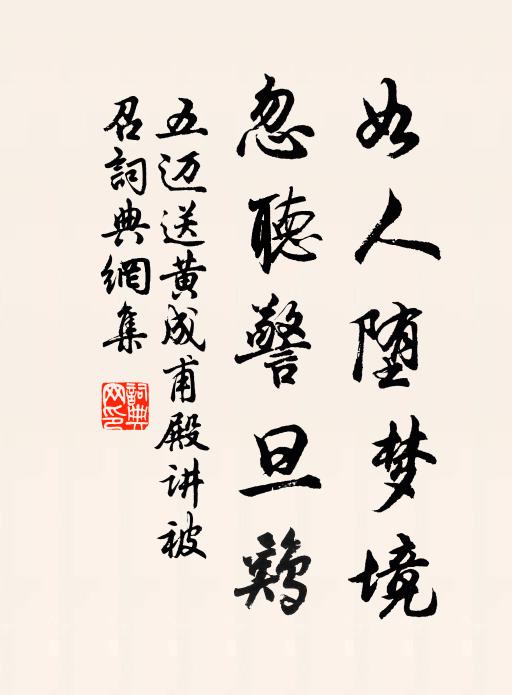 如人堕梦境
忽聽警旦鷄
五迈送黄成甫殿讲被
召詞典網集
詞典網印